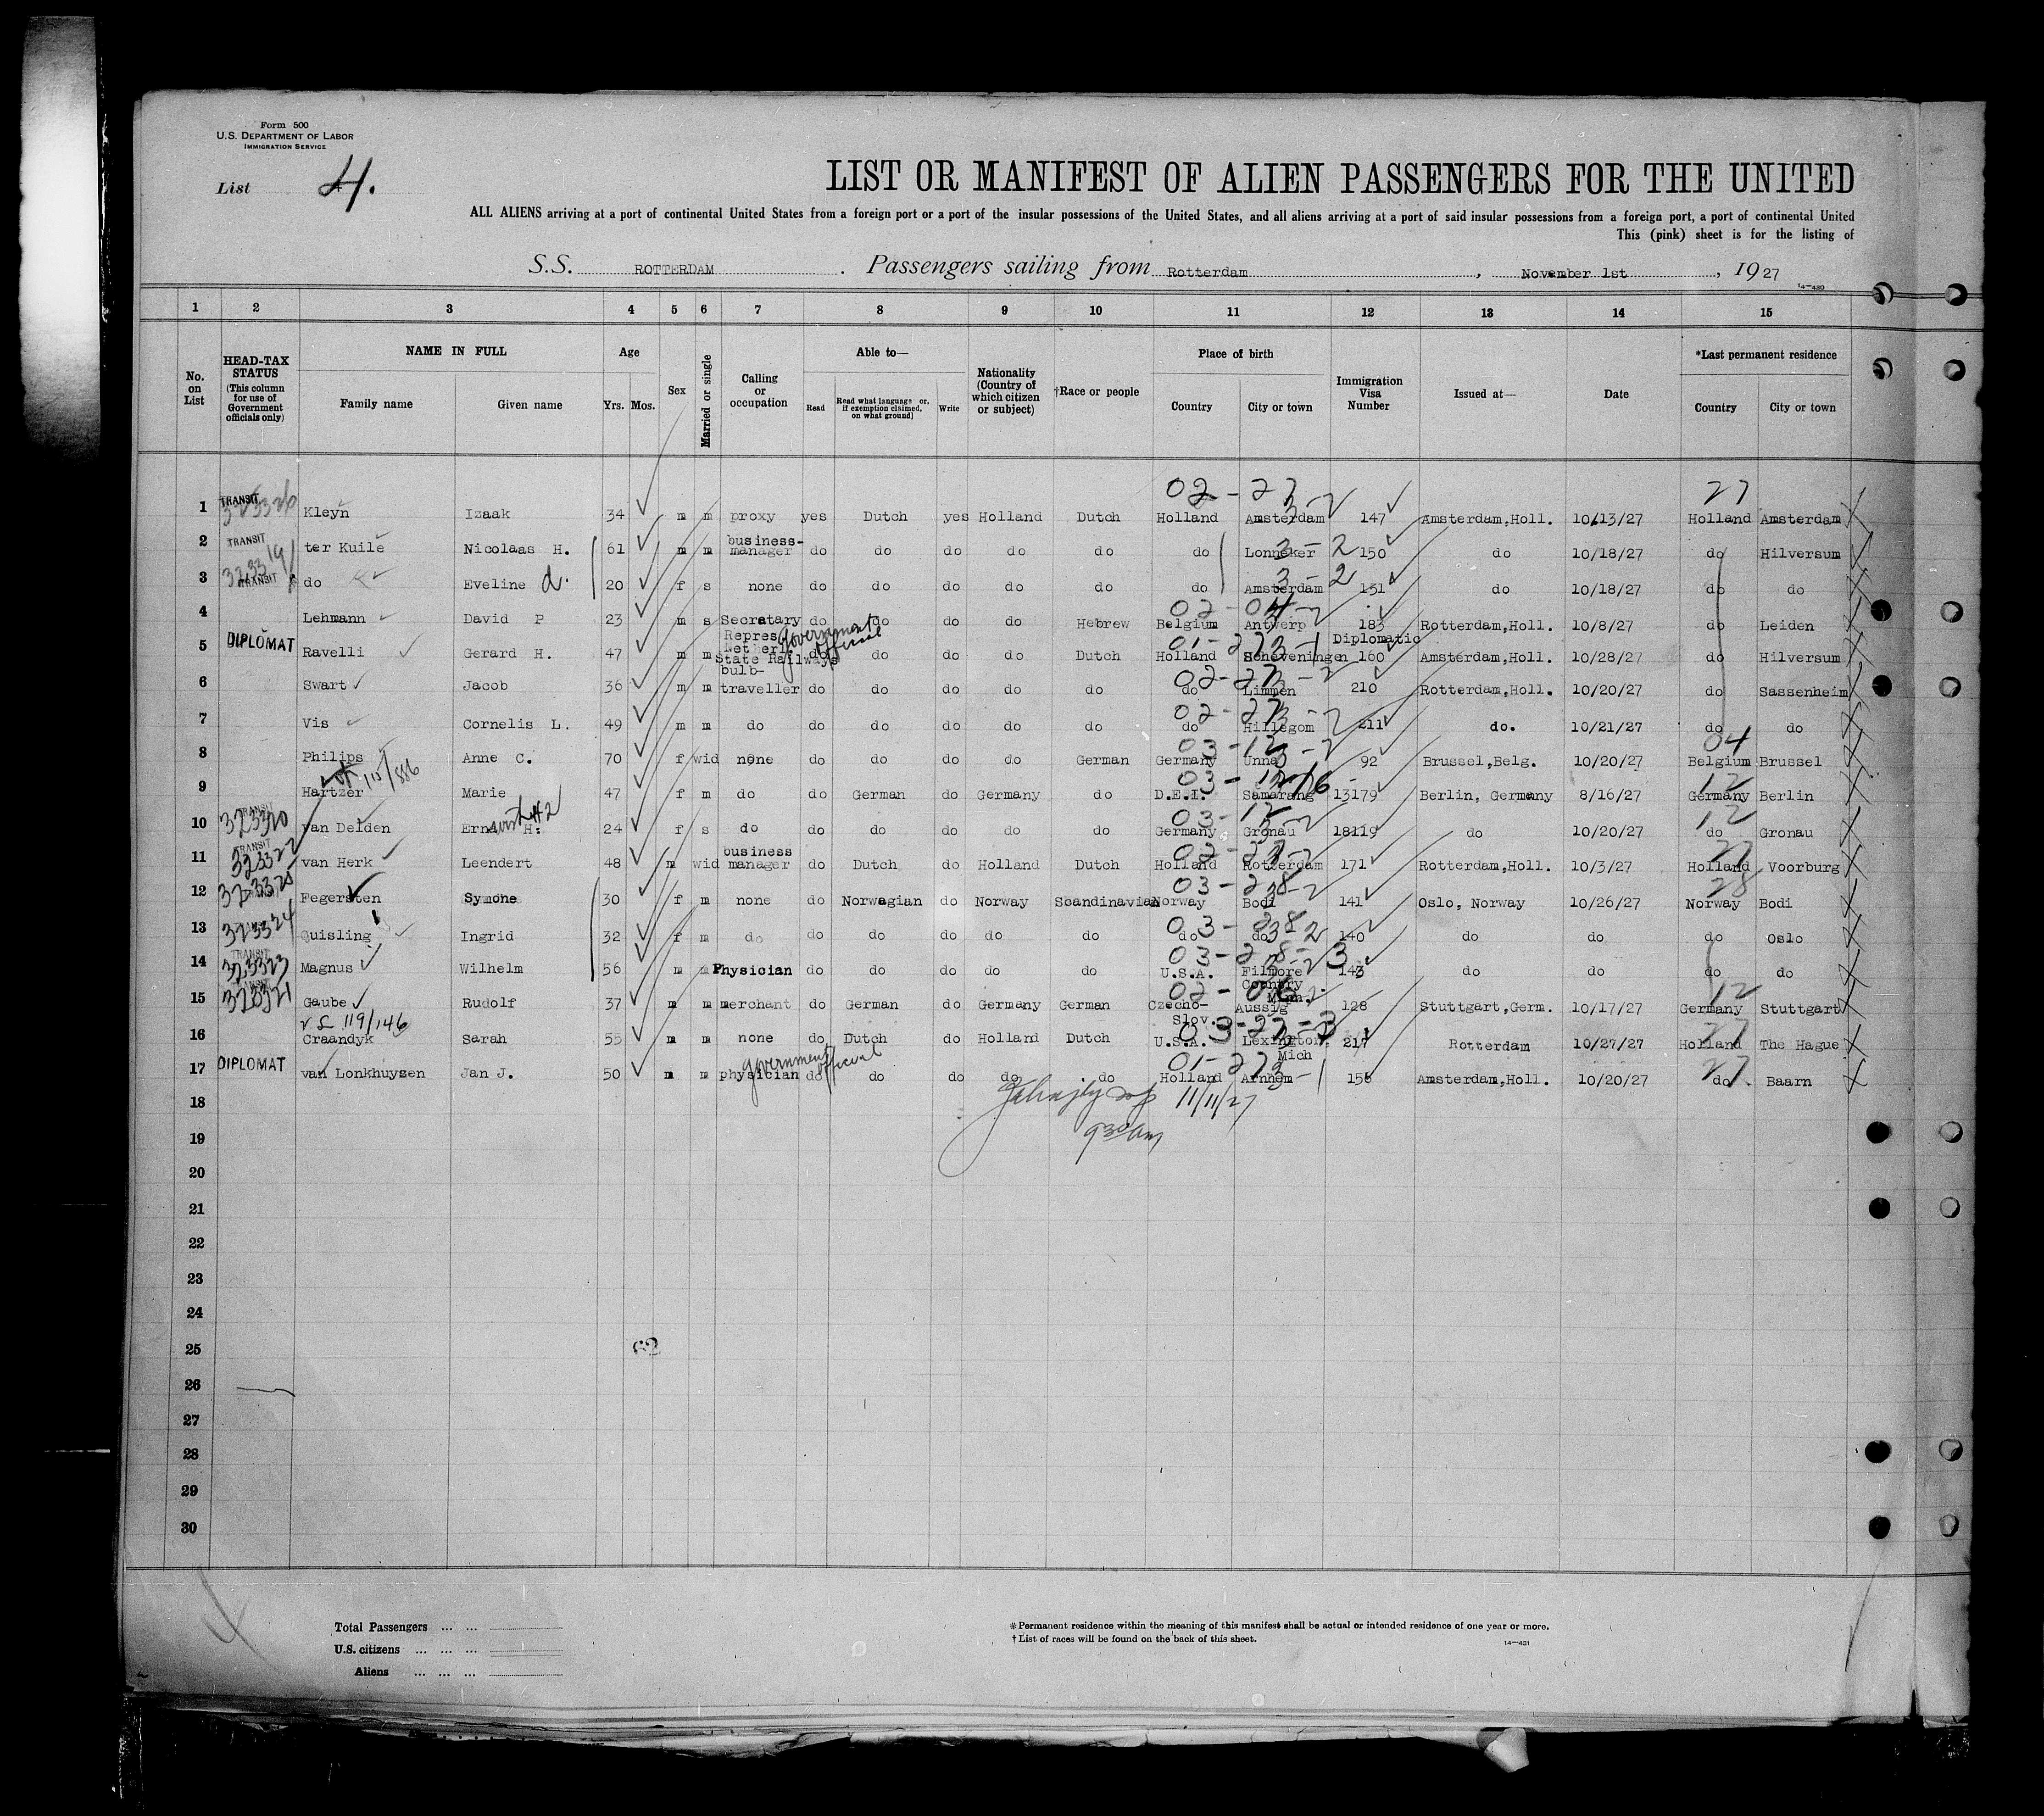 Form 500
U.S. DEPARTMENT OF LABOR
IMMIGRATION SERVICE
List 4.
LIST OR MANIFEST OF ALIEN PASSENGERS FOR THE UNITED
ALL ALIENS arriving at a port of continental United States from a foreign port or a port of the insular possessions of the United States, and all aliens arriving at a port of said insular possessions from a foreign port, a port of continental United
This (pink) sheet is for the listing of
S.S. ROTTERDAM. Passengers sailing from Rotterdam, November 1st, 1927
14—430
1 2 3 4 5 6 7 8 9 10 11 12 13 14 15
No. on List
HEAD-TAX STATUS (This column for use of Government officials only)
NAME IN FULL
Family name Given name
Age
Yrs. Mos.
Sex
Married or single
Calling or occupation
Able to—
Read Read what language or, if exemption claimed, on what ground] Write
Nationality (Country of which citizen or subject)
†Race or people
Place of birth
Country City or town
Immigration Visa Number
Issued at—
Date
*Last permanent residence
Country City or town
02-27 27
1 TRANSIT 323326 Kleyn Izaak 34 m m proxy yes Dutch yes Holland Dutch Holland Amsterdam 147 Amsterdam,Holl. 10/13/27 Holland Amsterdam
2 TRANSIT ter Kuile Nicolaas H. 61 m m business-manager do do do do do do Lonneker 3-2 150 do 10/18/27 do Hilversum
3 TRANSIT do Eveline d. 20 f s none do do do do do do Amsterdam 3-2 151 do 10/18/27 do do
4 Lehmann David P 23 m s Secretary do do do do Hebrew Belgium Antwerp 183 Rotterdam,Holl. 10/8/27 do Leiden
5 DIPLOMAT Ravelli Gerard H. 47 m m Repres. Netherl. State Railways government official do do do do Dutch Holland Scheveningen Diplomatic 160 Amsterdam,Holl. 10/28/27 do Hilversum
6 Swart Jacob 36 m m bulb-traveller do do do do do do Limmen 210 Rotterdam,Holl. 10/20/27 do Sassenheim
7 Vis Cornelis L. 49 m m do do do do do do do Hillegom 211 do. 10/21/27 do do
8 Philips Anne C. 70 f wid none do do do do German Germany Unna 92 Brussel,Belg. 10/20/27 Belgium Brussel 04
9 Hartzer 115/886 Marie 47 f m do do German do Germany do D.E.I. Samarang 13179 Berlin, Germany 8/16/27 Germany Berlin
10 TRANSIT 323320 van Delden Erna H. 24 f s do do do do do do Germany Gronau 18119 do 10/20/27 do Gronau
11 TRANSIT 323322 van Herk Leendert 48 m wid business manager do Dutch do Holland Dutch Holland Rotterdam 171 Rotterdam,Holl. 10/3/27 Holland Voorburg
12 323325 Fegersten Symone 30 f m none do Norwegian do Norway Scandinavian Norway Bodi 141 Oslo, Norway 10/26/27 Norway Bodi
13 323324 Quisling Ingrid 32 f m do do do do do do do do 140 do do do Oslo
14 TRANSIT 323323 Magnus Wilhelm 56 m m Physician do do do do do U.S.A. Filmore Country Minn. 143 do do do do
15 323321 Gaube Rudolf 37 m m merchant do German do Germany German Czecho-Slov. Aussig 128 Stuttgart,Germ. 10/17/27 Germany Stuttgart
16 119/146 Craandyk Sarah 55 m m none do Dutch do Holland Dutch U.S.A. Lexington, Mich 217 Rotterdam 10/27/27 Holland The Hague
17 DIPLOMAT van Lonkhuyzen Jan J. 50 m m physician government official do do do do do Holland Arnhem 158 Amsterdam,Holl. 10/20/27 do Baarn
18 11/11/27
19 930 am
20
21
22
23
24
25 62
26
27
28
29
30
Total Passengers ... ...
U.S. citizens ... ... ...
Aliens ... ... ...
*Permanent residence within the meaning of this manifest shall be actual or intended residence of one year or more.
†List of races will be found on the back of this sheet.
14—431